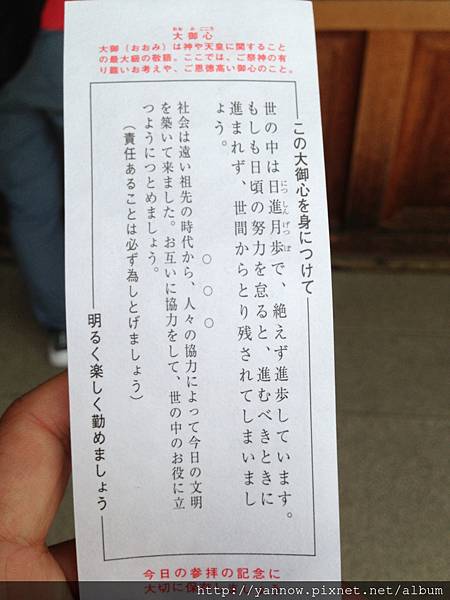 おおみごころ
大御心
大御(おおみ)は神や天皇に関すること
の最大級の敬語。ここでは、ご祭神の有
り難いお考えや、ご恩徳高い御心のこと。
この大御心を身につけて
にっしんげっぽ
世の中は日進月歩で、絶えず進歩しています。
もしも日頃の努力を怠ると、進むべきときに
進まれず、世間からとり残されてしまいまし
ょう。
○○○
社会は遠い祖先の時代から、人々の協力によって今日の文明
を築いて来ました。お互いに協力をして、世の中のお役に立
つようにつとめましょう。
(責任あることは必ず為しとげましょう)
明るく楽しく勤めましょう
今日の参拝の記念に
大切に保
http://yannow.pixnet.net/album